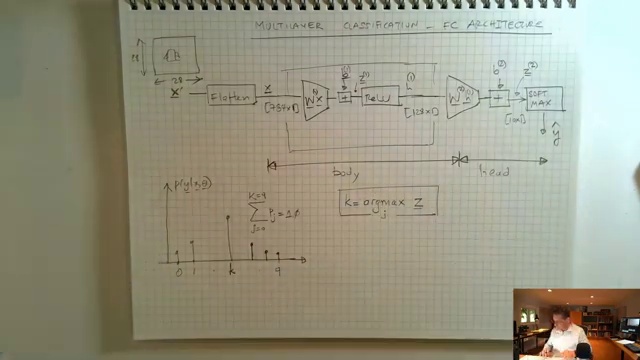 MULTILAYER CLASSIFICATION - FC ARCHITECTURE
28
28
x' Flatten x [784x1] W⁽¹⁾x b⁽¹⁾ + z⁽¹⁾ ReLU h⁽¹⁾ [128x1] W⁽²⁾h⁽¹⁾ b⁽²⁾ + z⁽²⁾ [10x1] SOFT MAX
ŷ
body head
p(y|x,θ)
K=9
∑ Pj = 1.0
j=0
k = argmax z
j
0 1 . k 9